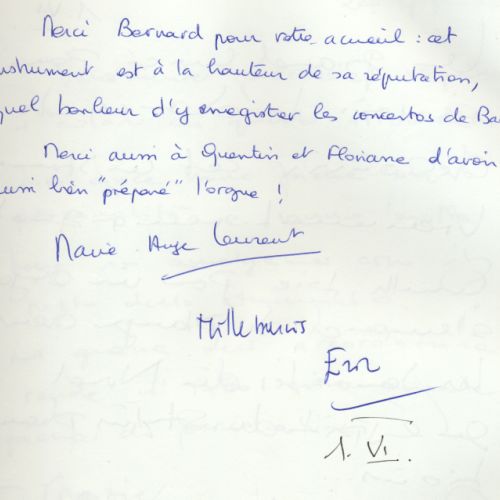 Merci Bernard pour votre accueil : cet
instrument est à la hauteur de sa réputation,
quel bonheur d'y enregistrer les concertos de Ba
Merci aussi à Quentin et Floriane d'avoir
aussi bien "préparé" l'orgue !
Marie Ange Laurent
Mille mercis
1. VI.